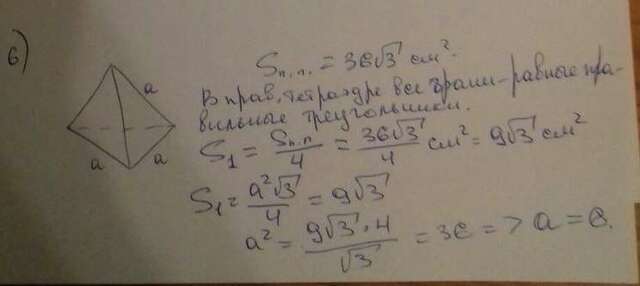 6)
a
a
a
Sп.п. = 36√3 см².
В прав. тетраэдре все грани-равные пра-
вильные треугольники.
S₁ = Sп.п/4 = 36√3/4 см² = 9√3 см²
S₁ = a²√3/4 = 9√3
a² = 9√3·4/√3 = 36 => a = 6.